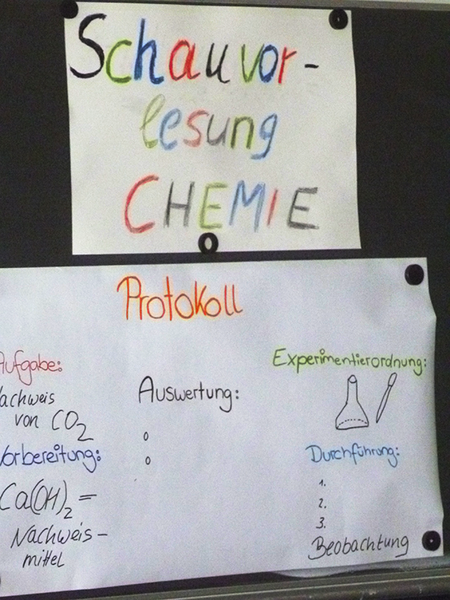 Schauvor-
lesung
CHEMIE
Protokoll
Aufgabe:
Nachweis
von CO2
Vorbereitung:
Ca(OH)2 =
Nachweis-
mittel
Auswertung:
Experimentierordnung:
Durchführung:
1.
2.
3.
Beobachtung